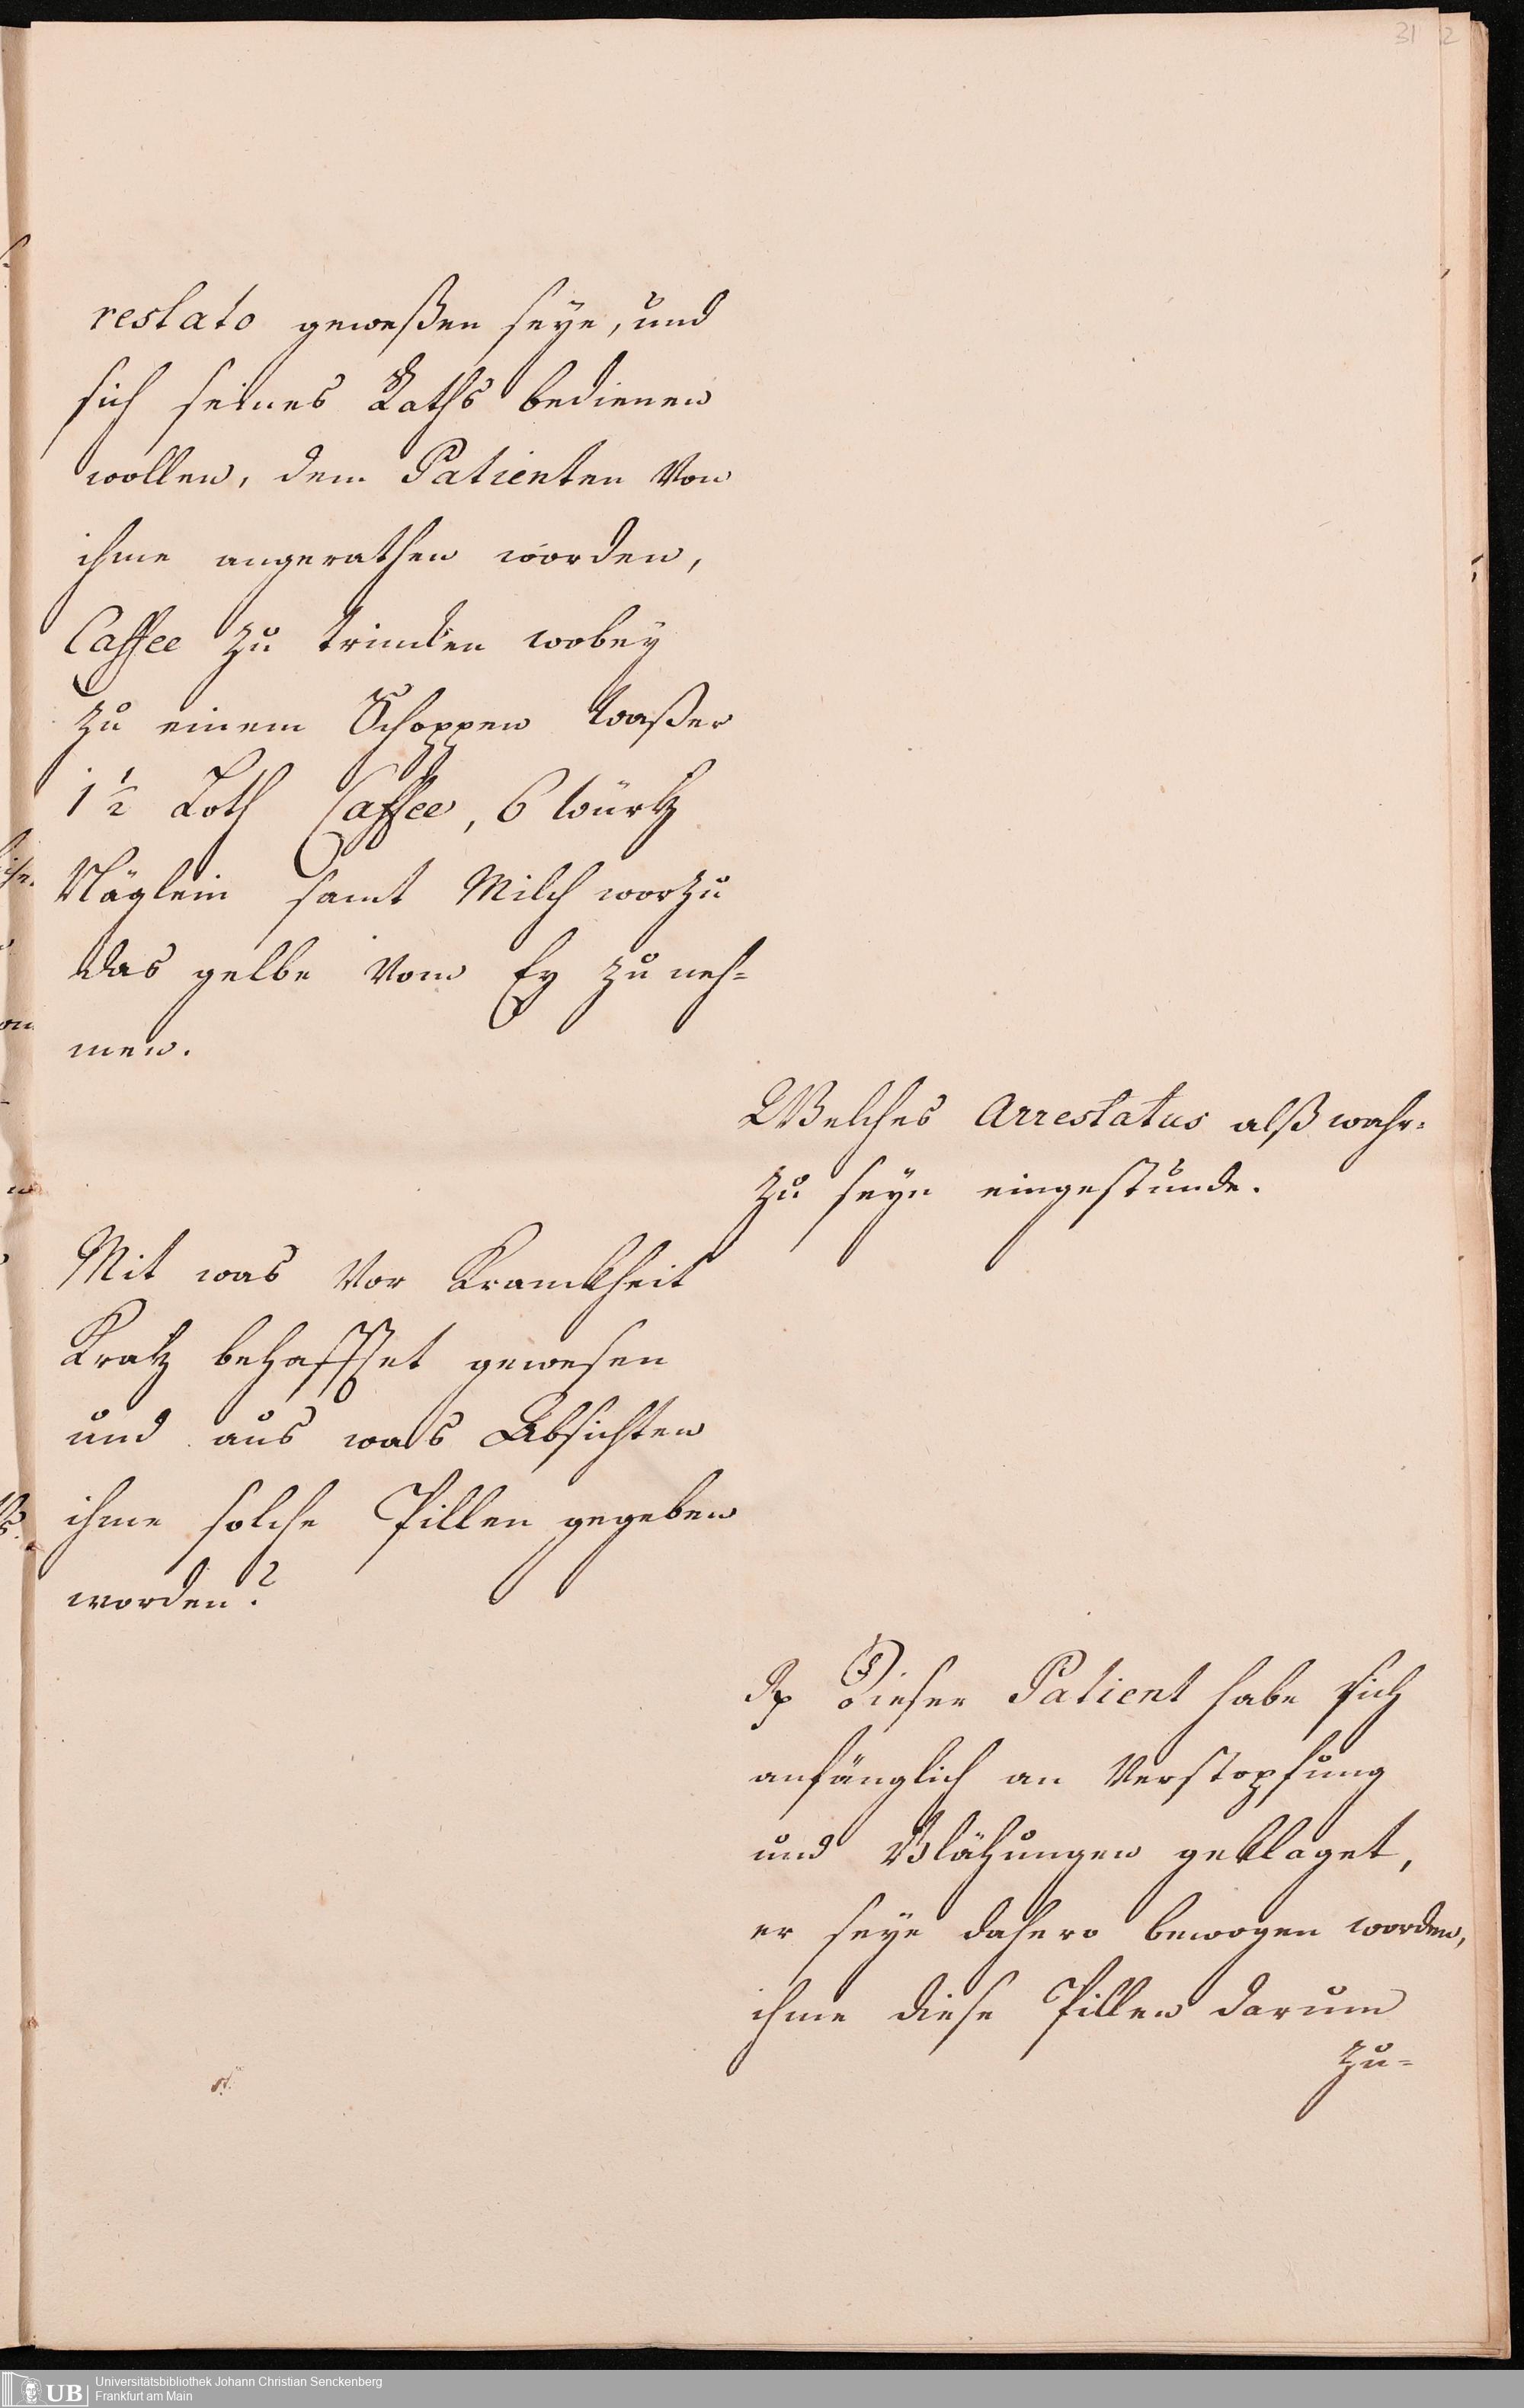 31
2
restato geweßen seÿe, und
sich seines Raths bedienen
wollen, dem Patienten von
ihme angerathen worden,
Caffee zu trincken wobeÿ
zu einem Schoppen Waßer
1 ½ Loth Caffee, 6 Würtz
Näglein samt Milch worzu
das gelbe vom Eÿ zu neh=
men.
Welches Arrestatus alß wahr
zu seÿn eingestunde.
Mit was vor Kranckheit
Kratz behafftet gewesen
und aus was Absichten
ihme solche Pillen gegeben
worden?
Dieser Patient habe sich
anfänglich an Verstopfung
und Blähungen geklaget,
er seÿe dahero bewogen worden,
ihme diese Pillen darum
zu=
UB
Universitätsbibliothek Johann Christian Senckenberg
Frankfurt am Main